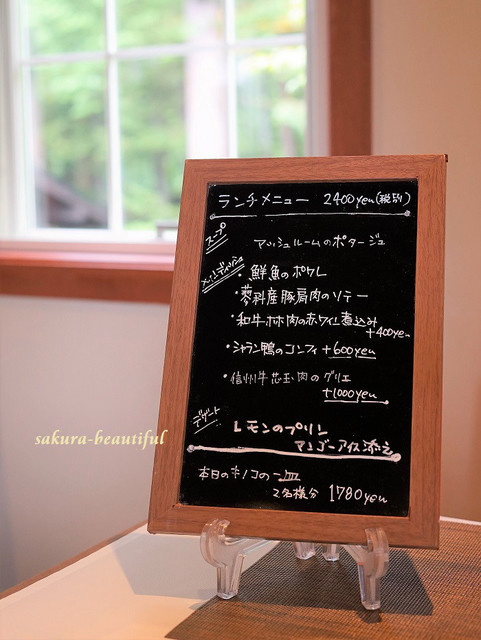 ランチメニュー 2400yen(税別)
スープ
マッシュルームのポタージュ
メインディッシュ
・鮮魚のポワレ
・蓼科産豚肩肉のソテー
・和牛ホホ肉の赤ワイン煮込み
+400yen
・シャラン鴨のコンフィ +600yen
・信州牛芯玉肉のグリエ
+1000yen
デザート
レモンのプリン
マンゴーアイス添え
本日のキノコの一皿
2名様分 1780yen
sakura-beautiful